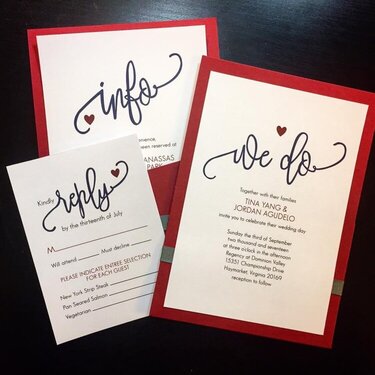 info
ience,
een reserved at
ANASSAS
PARK
Kindly
reply
by the thirteenth of July
M
Will attend Must decline
PLEASE INDICATE ENTREE SELECTION
FOR EACH GUEST
New York Strip Steak
Pan Seared Salmon
Vegetarian
we do
Together with their families
TINA YANG &
JORDAN AGUDELO
invite you to celebrate their wedding day
Sunday the third of September
two thousand and seventeen
at three o'clock in the afternoon
Regency at Dominion Valley
15351 Championship Drive
Haymarket, Virginia 20169
reception to follow